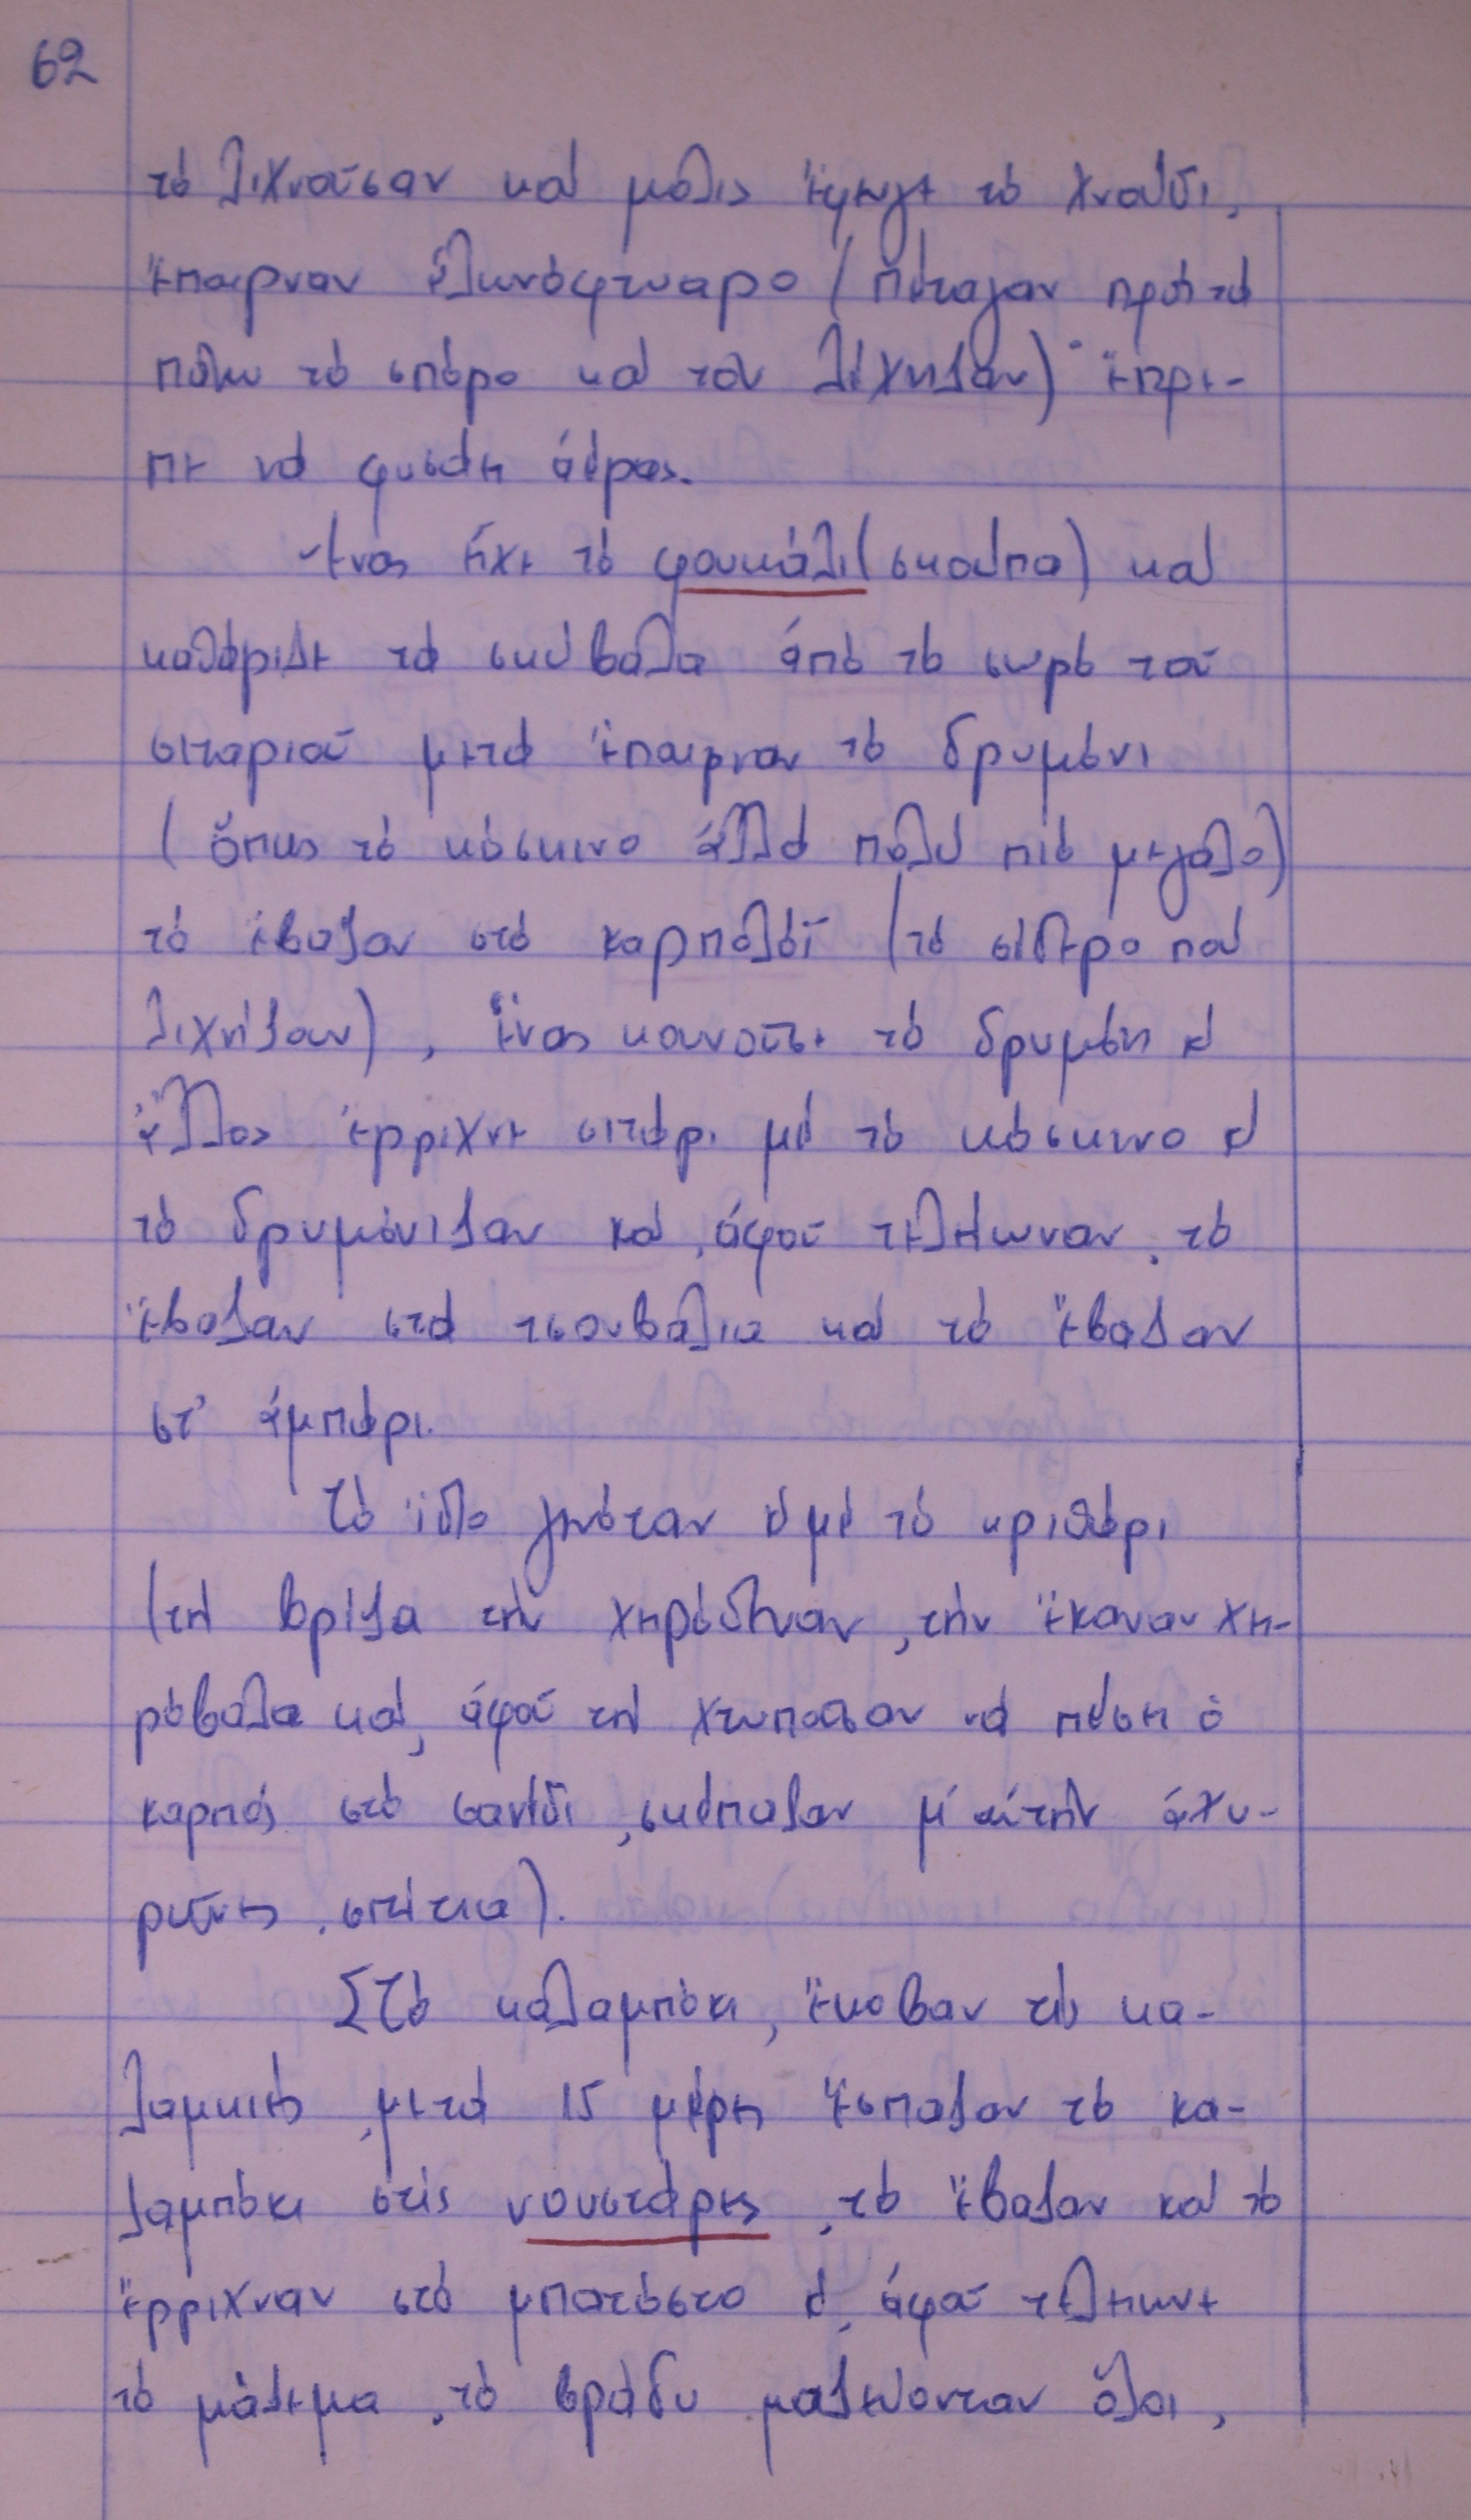 62
τό λιχνοῦσαν καί μόλις ἔφευγε τό χνοῦδι,
ἔπαιρναν ξυλινόφτυαρο (πέταγαν πρός τά
πάνω τό σπόρο καί τόν λίχνιζαν) ἔπρε-
πε νά φυσάει ἀέρας.
Ἕνας εἶχε τό φουκάλι (σκούπα) καί
καθάριζε τά σκύβαλα ἀπό τό σωρό τοῦ
σιταριοῦ μετά ἔπαιρναν τό δρυμόνι
(ὅπως τό κόσκινο ἀλλά πολύ πιό μεγάλο)
τό ἔβαζαν στό καρπολόϊ (τό σίδερο πού
λιχνίζαν), ἕνας κουνοῦσε τό δρυμόνι κί
ἄλλος ἔρριχνε σιτάρι μέ τό κόσκινο κί
τό δρυμόνιζαν καί, ἀφοῦ τελείωναν, τό
ἔβαζαν στά τσουβάλια καί τό ἔβαζαν
στ' ἀμπάρι.
Τό ἴδιο γινόταν κί μέ τό κριθάρι
(τή βρίζα τήν χερόδεναν, τήν ἔκαναν χε-
ρόβολα καί, ἀφοῦ τή χτυποῦσαν νά πέσει ὁ
καρπός στό σανίδι, σκέπαζαν μ' αὐτήν ἀχυ-
ρένιες σπίτια).
Στό καλαμπόκι, ἔκοβαν τίς κα-
λαμιές, μετά 15 μέρες ἔσπαζαν τό κα-
λαμπόκι στίς νουστάρες, τό ἔβαζαν καί τό
ἔρριχναν στό μπατόστο κί, ἀφοῦ τελείωνε
τό μάζεμα, τό βράδυ μαζεύονταν ὅλοι,